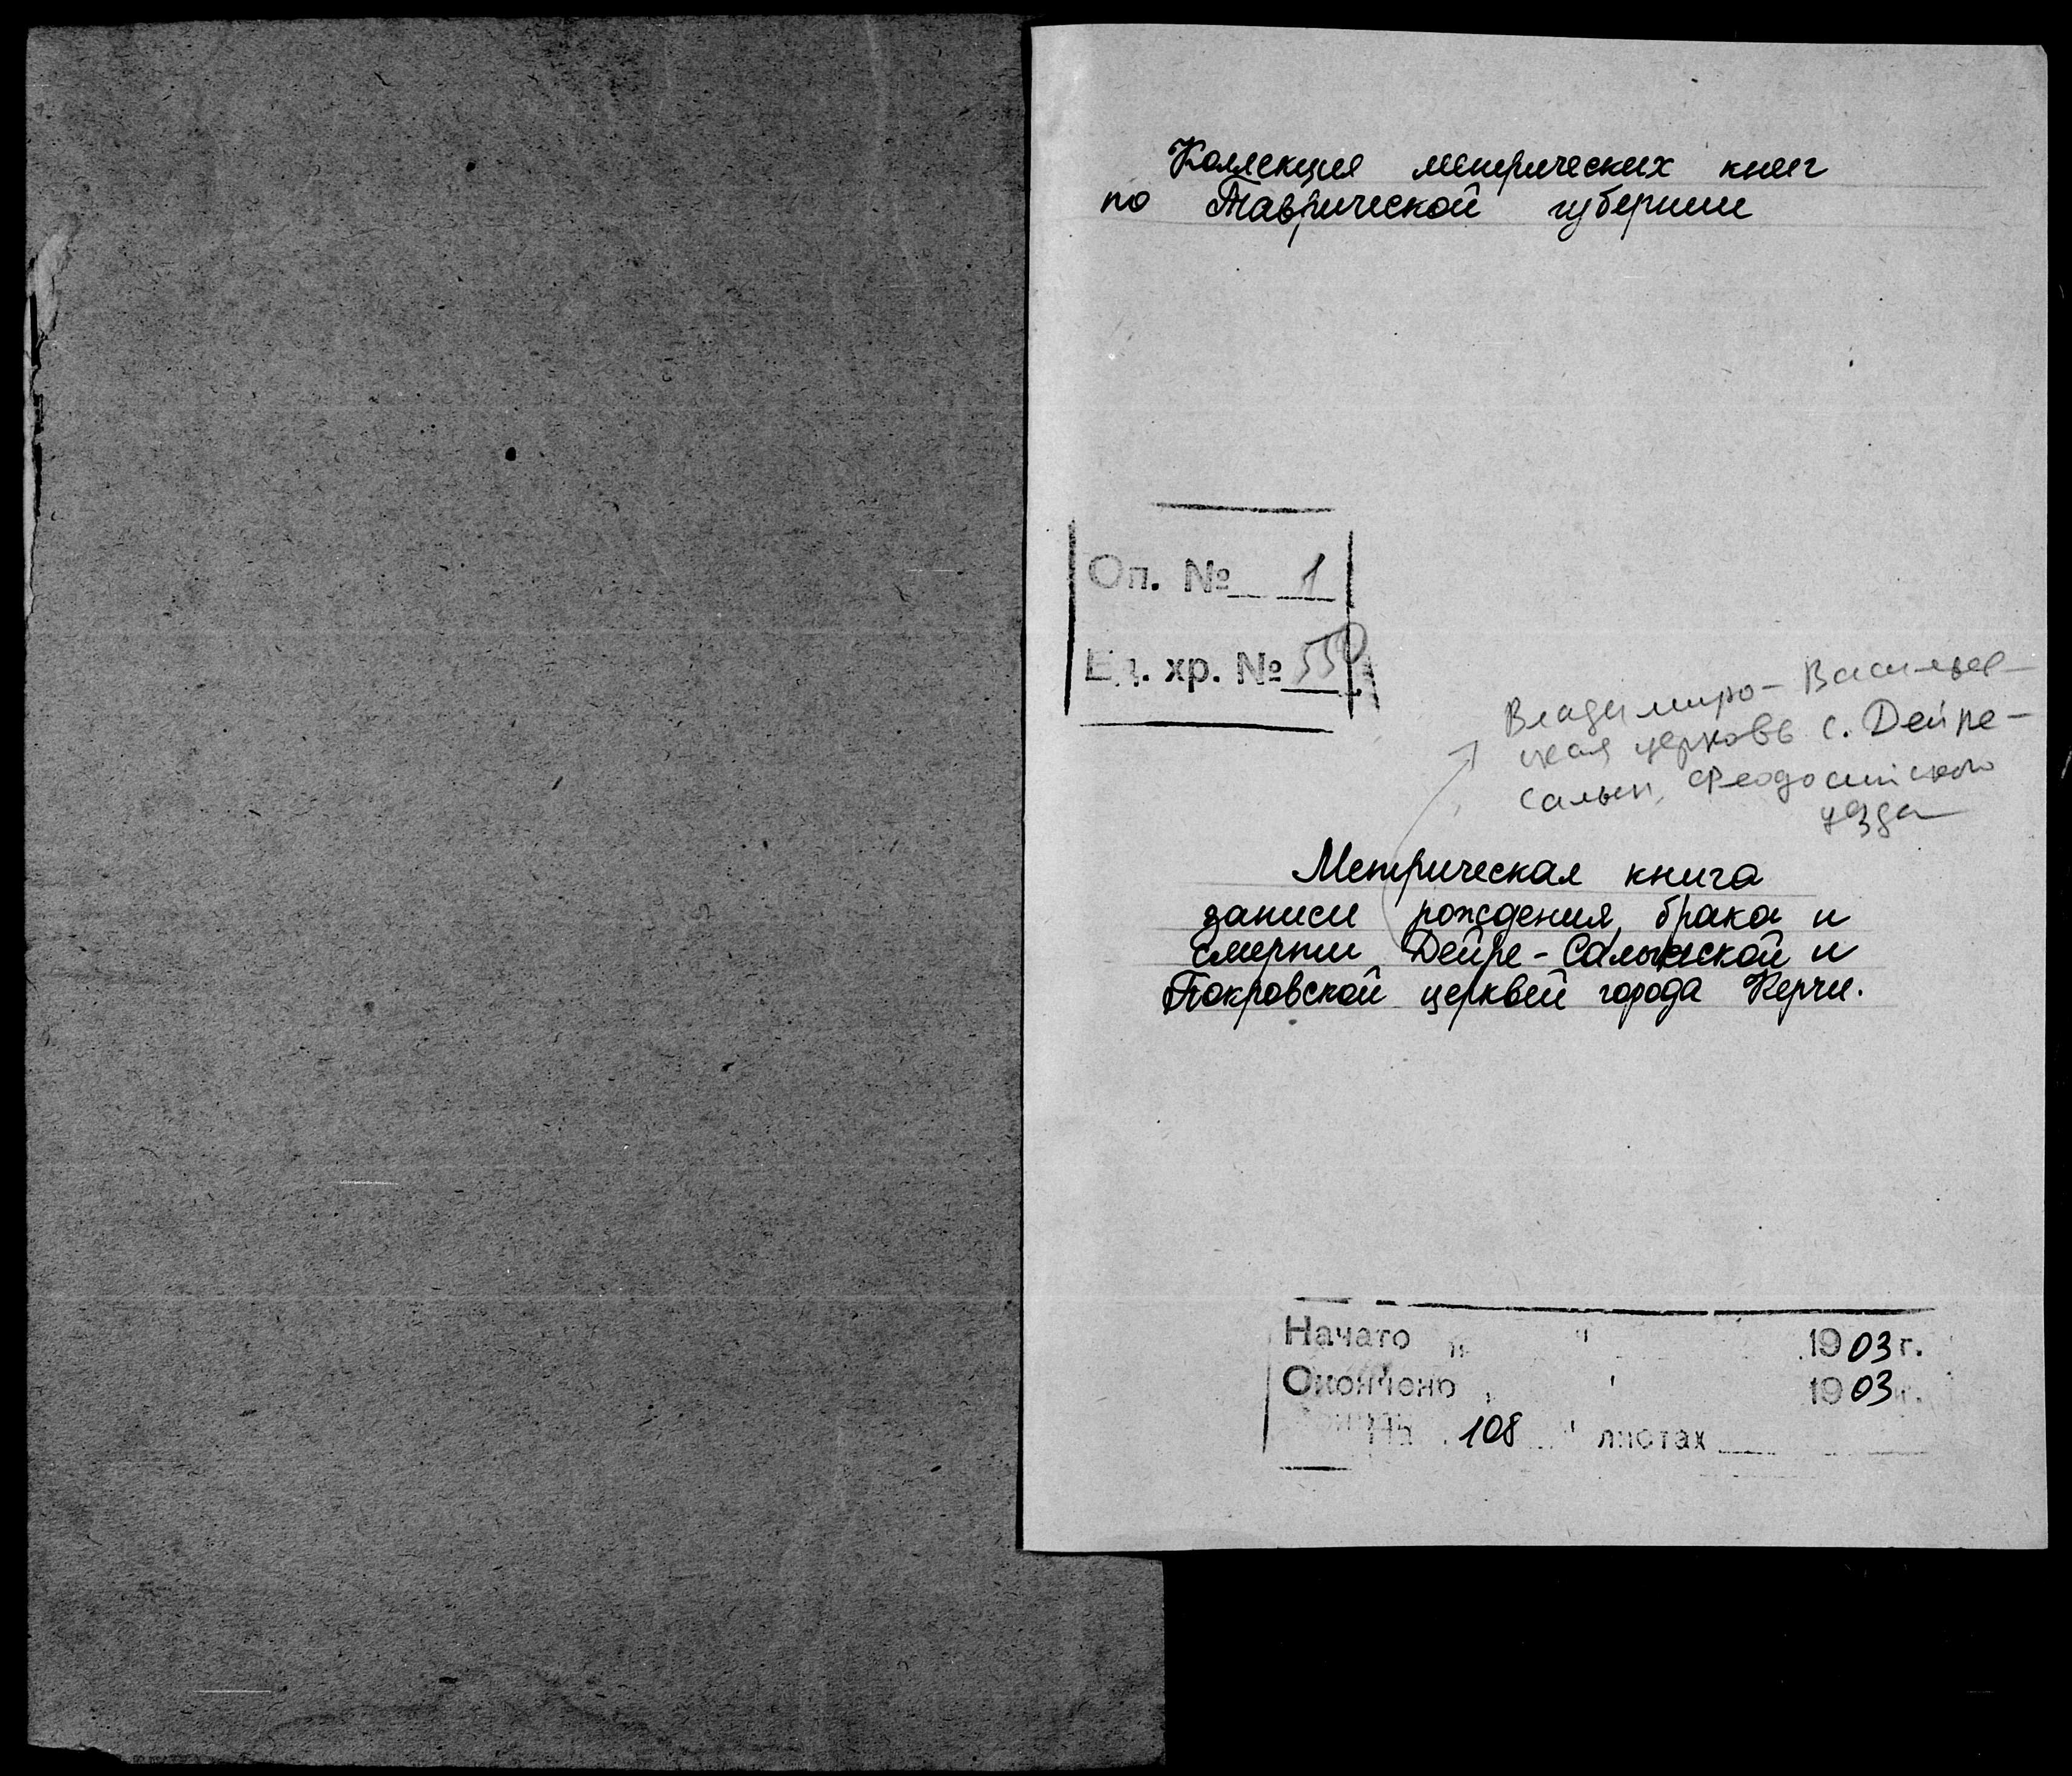 Коллекция метрических книг
по Таврической губернии
Оп. № 1
Ед. хр. № 550
Владимиро-Васильев-
ская церковь с. Дейре-
Салын, Феодосийского
уезда
Метрическая книга
записи рождения, брака и
смерти Дейре-Салынской и
Покровской церквей города Керчи.
Начато " " 1903 г.
Окончено " " 1903 г.
На 108 листах